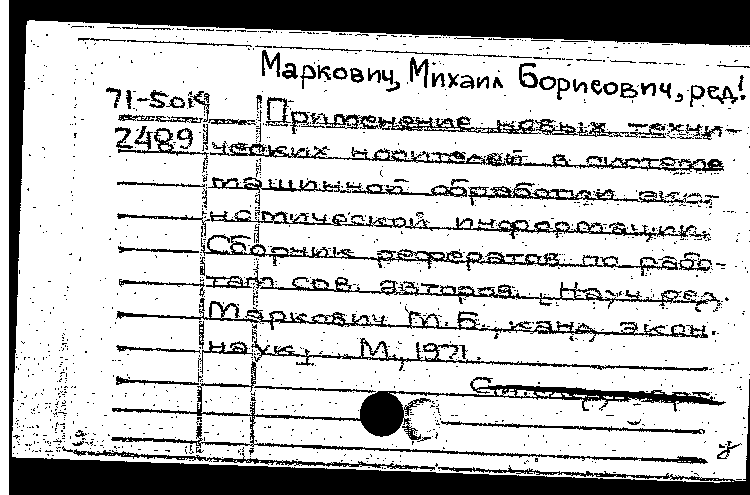 Маркович, Михаил Борисович, ред!
71-5ок Применение новых техни-
2489 ческих носителей в системе
машинной обработки эко-
номической информации.
Сборник рефератов по рабо-
там сов. авторов. [Науч. ред.
Маркович М.Б., канд. экон.
наук]. М., 1971.
См. след. карт.